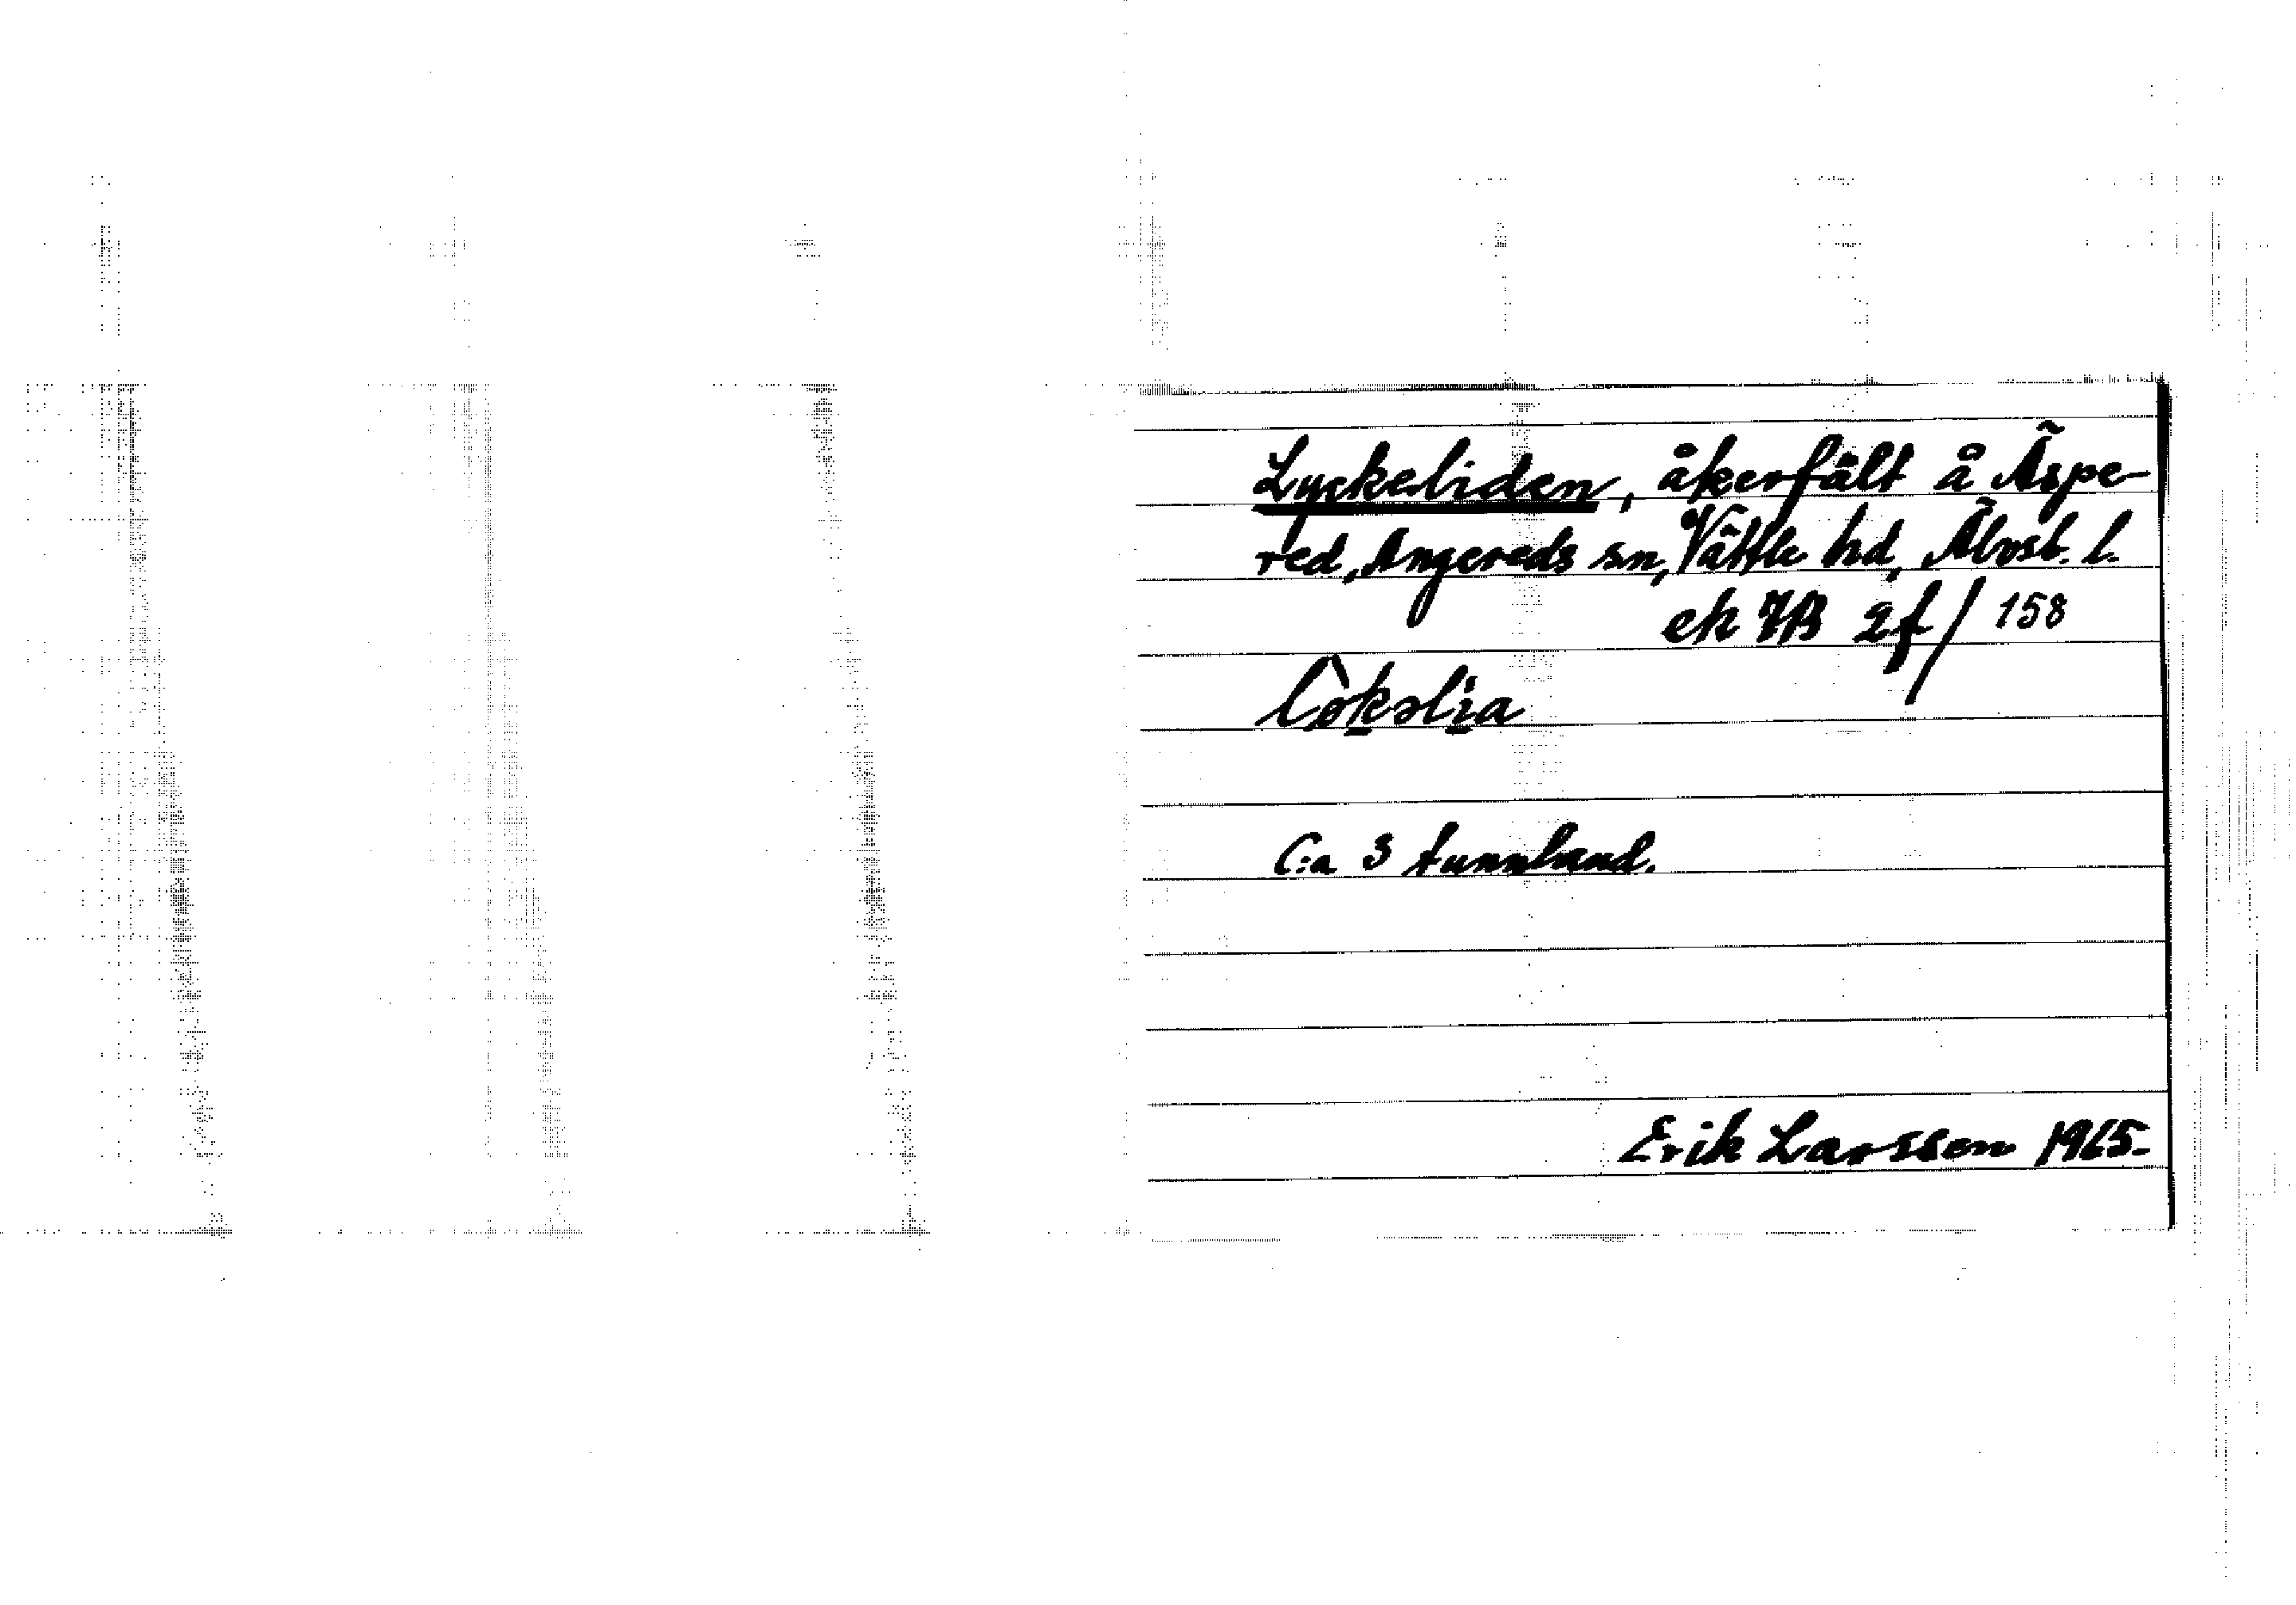 Lyckeliden, åkerfält å Äspe-
red, Angereds sn, Vättle hd, Älvsb. l.
ek 7B 2f/158
lòkəlia
C:a 3 tunnland.
Erik Larsson 1965.